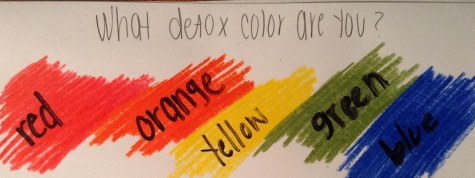 What detox color are you?
red
orange
yellow
green
blue